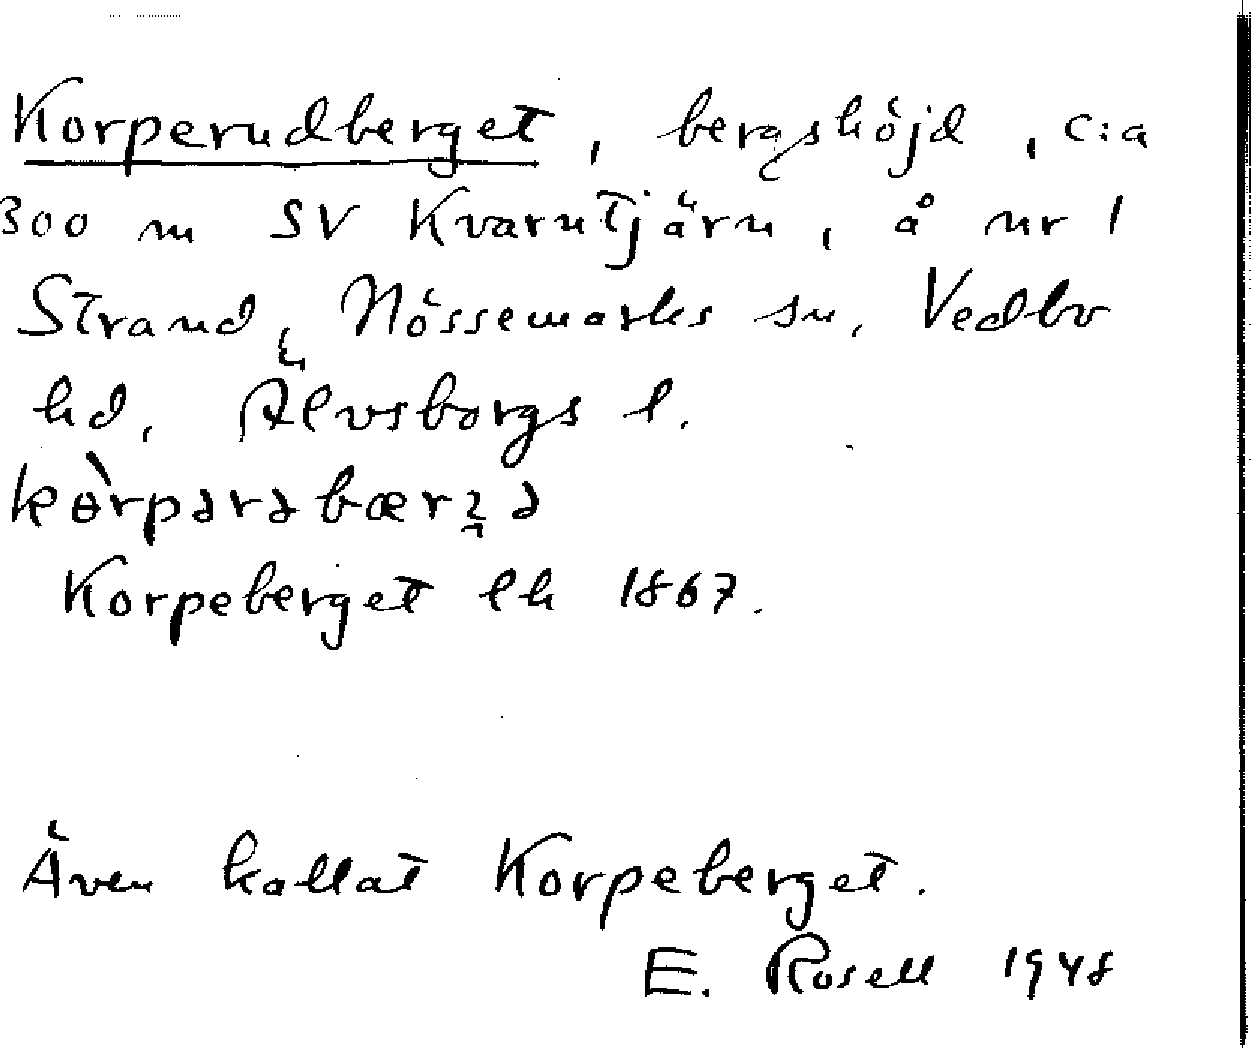 Korperudberget, bergshöjd, c:a
300 m SV Kvarntjärn, å nr 1
Strand, Nössemarks sn, Vedbo
hd, Älvsborgs l.
Korpeberget lh 1867.
Även kallat Korpeberget.
E. Rosell 1948